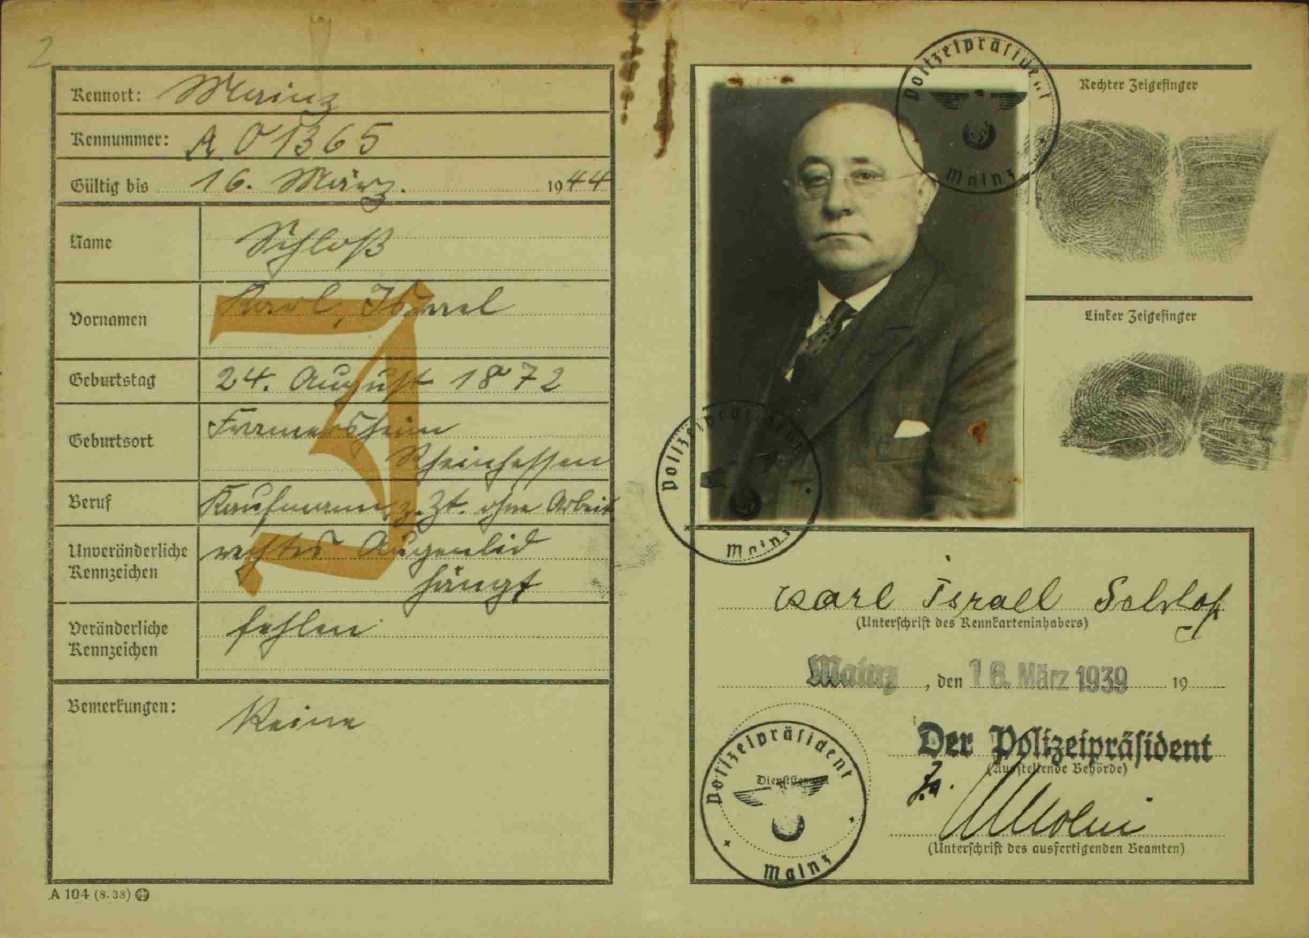 2
Kennort: Mainz
Kennummer: A 01365
Gültig bis 16. März. 1944
Name Schloß
Vornamen Karl, Israel
J
Geburtstag 24. August 1872
Geburtsort Framersheim
Rheinhessen
Beruf Kaufmann, z. Zt. ohne Arbeit
Unveränderliche Kennzeichen rechtes Augenlid
hängt
Veränderliche Kennzeichen fehlen
Bemerkungen: Keine
A 104 (8. 38)
Polizeipräsident
Mainz
Rechter Zeigefinger
Linker Zeigefinger
Polizeipräsident
Mainz
Karl Israel Schloß
(Unterschrift des Kennkarteninhabers)
Mainz, den 16. März 1939 19
Der Polizeipräsident
(Ausstellende Behörde)
Polizeipräsident
Mainz
(Unterschrift des ausfertigenden Beamten)